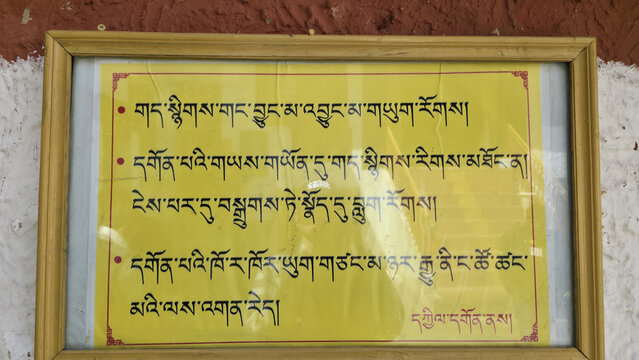 • གད་སྙིགས་གང་བྱུང་མ་འབྱུང་མ་གཡུག་རོགས།
• དགོན་པའི་གཡས་གཡོན་དུ་གད་སྙིགས་རིགས་མཐོང་ན།
ངེས་པར་དུ་བསྒྲུགས་ཏེ་སྣོད་དུ་བླུག་རོགས།
• དགོན་པའི་ཁོ་ར་ཁོར་ཡུག་གཙང་མ་ཉར་རྒྱུ་ནི་ང་ཚོ་ཚང་
མའི་ལས་འགན་རེད།
དཀྱིལ་དགོན་ནས།